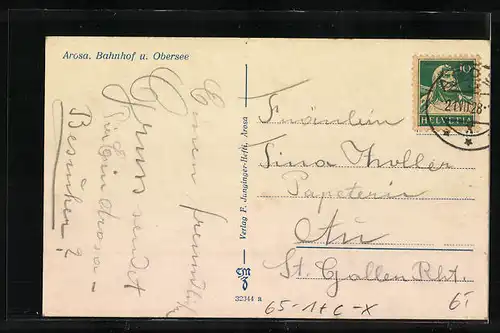 Arosa. Bahnhof u. Obersee
Einen freundlichen
Gruss sendet
Ein Arosa-
Besucher?
Verlag F. Junginger-Hefti, Arosa
32344 a
10
HELVETIA
28
Fräulein
Tina Koller
Papeterie
Au
St. Gallen Rht.
65-1+c-x
6.-